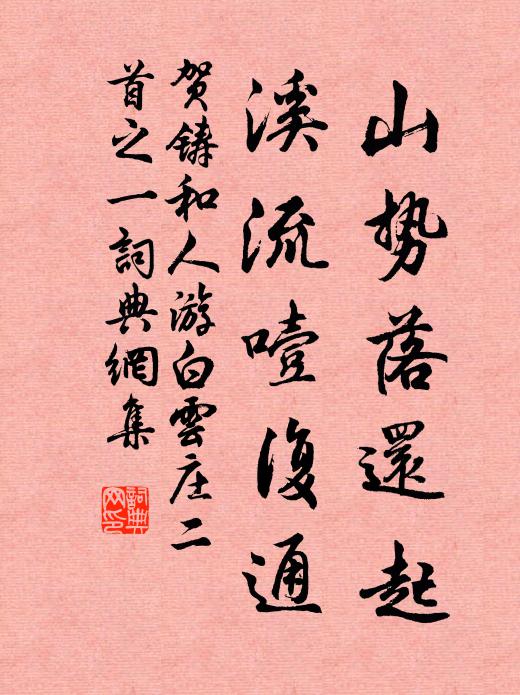 山勢落還起
溪流噎復通
贺鑄和人游白雲庄二
首之一詞典網集
詞典
网印